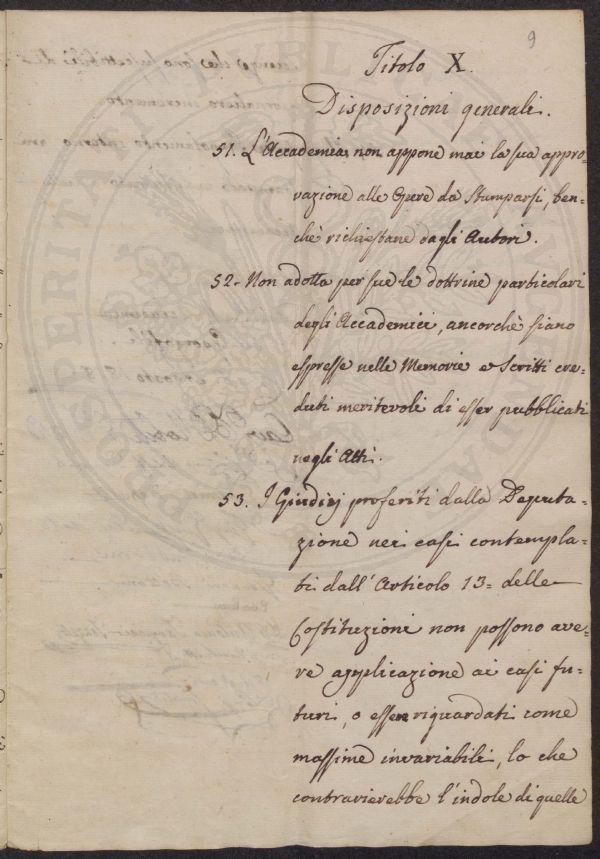 9
Titolo X.
Disposizioni generali.
51. L'Accademia non appone mai la sua appro-
vazione alle Opere da Stamparsi, ben-
chè richiestane dagli Autori.
52. Non adotta per sue le dottrine particolari
degli Accademici, ancorchè siano
espresse nelle Memorie e Scritti cre-
duti meritevoli di esser pubblicati
negli Atti.
53. I Giudizj proferiti dalla Deputa-
zione nei casi contempla-
ti dall'Articolo 13. delle
Costituzioni non possono ave-
re applicazione ai casi fu-
turi, o esser riguardati come
massime invariabili, lo che
contravierebbe l'indole di quelle